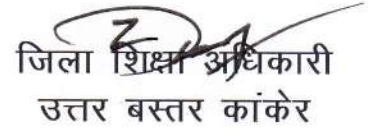 जिला शिक्षा अधिकारी
उत्तर बस्तर कांकेर